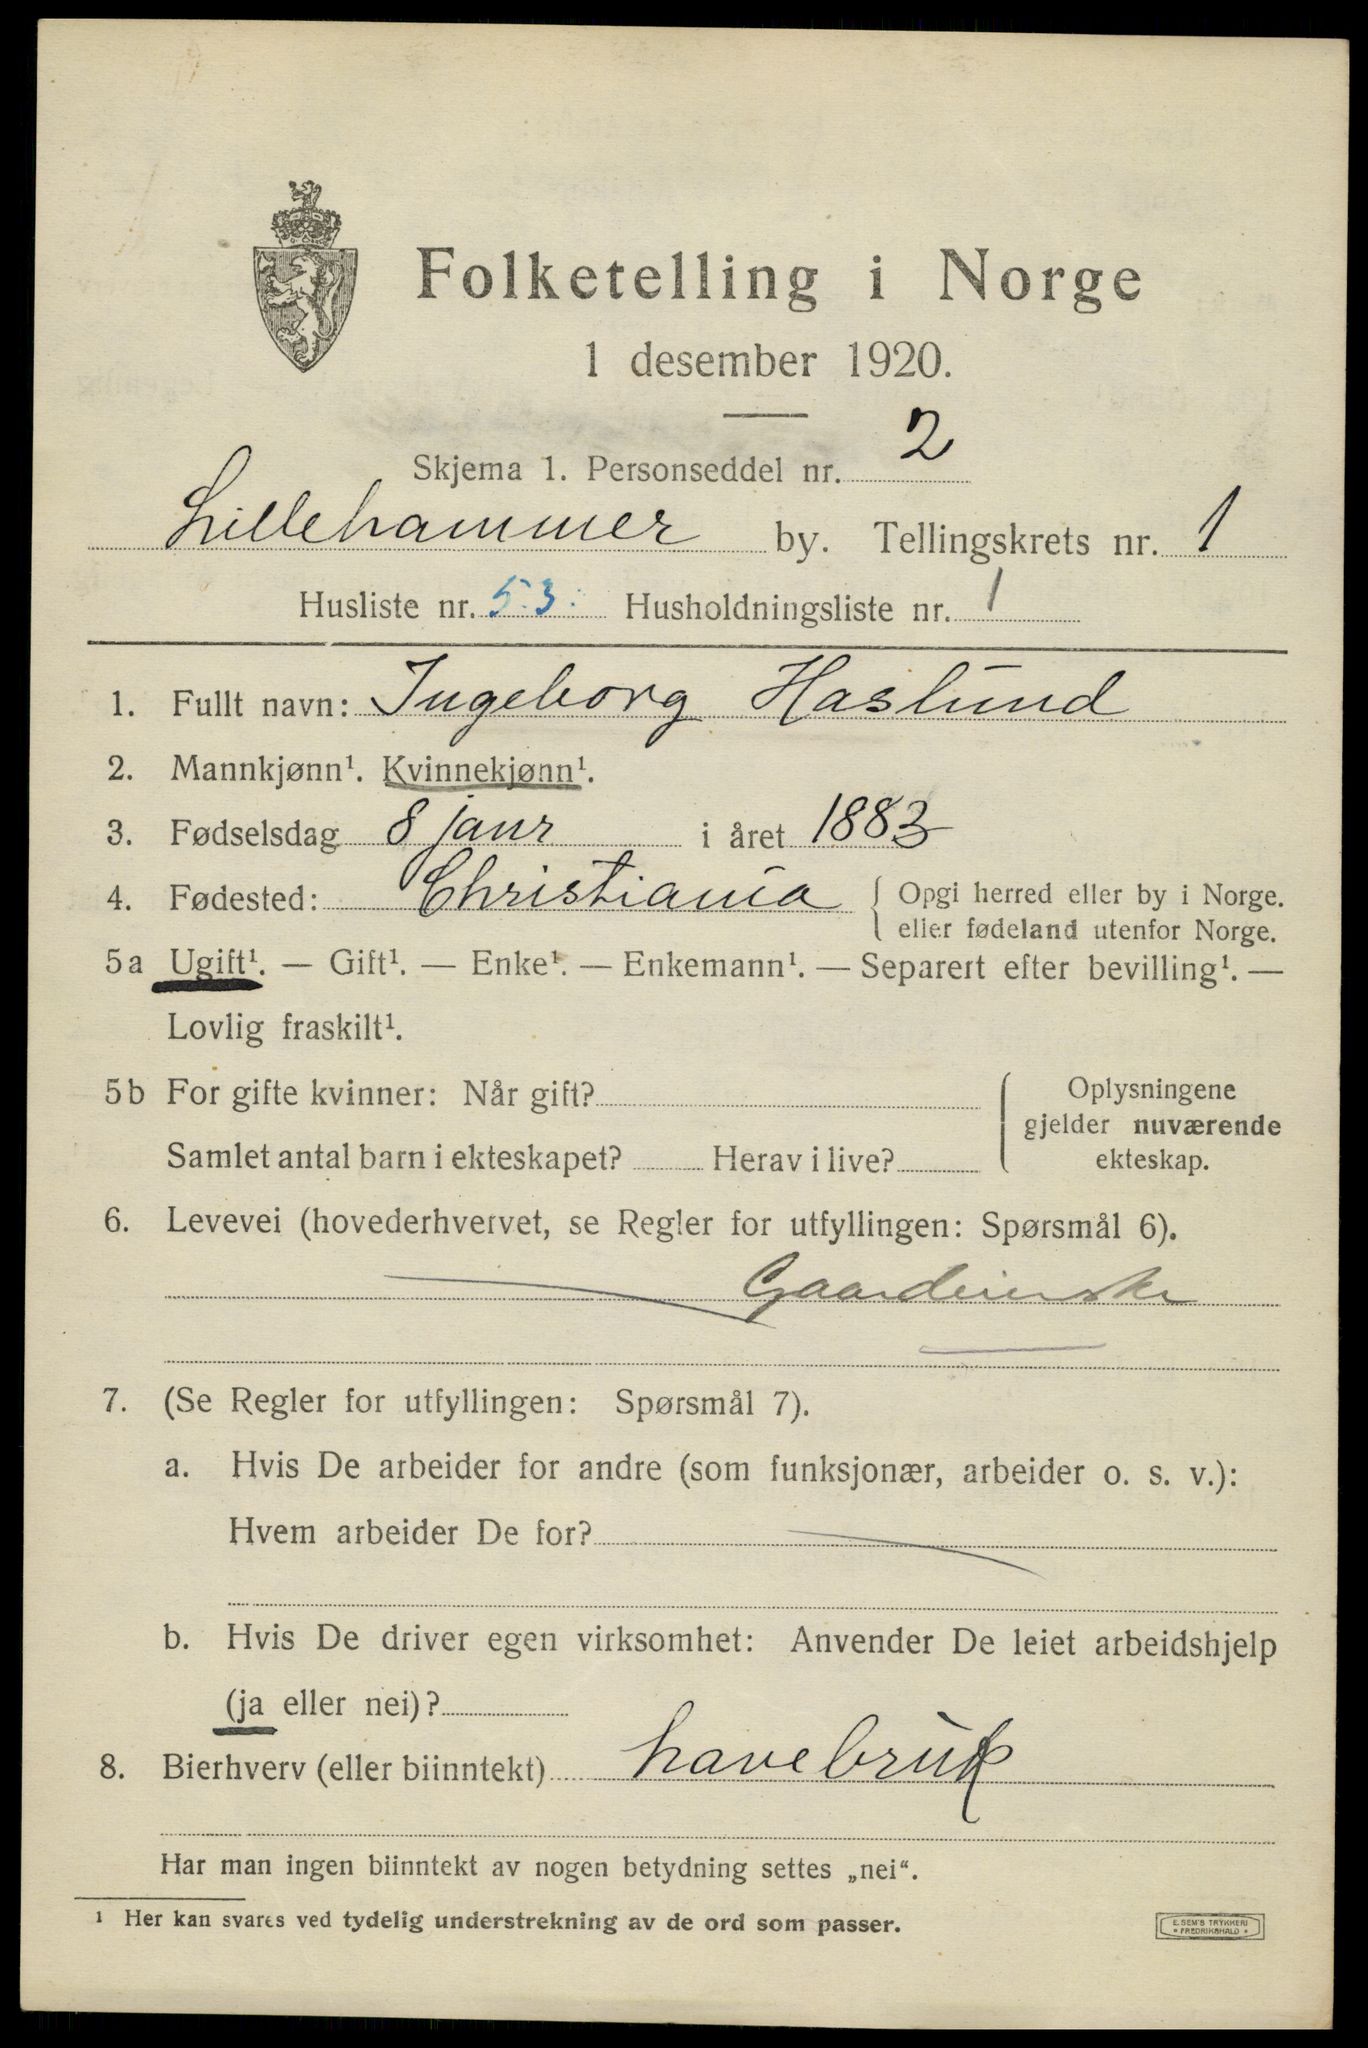 Folketelling i Norge
1 desember 1920.
Skjema 1. Personseddel nr. 2
Lillehammer by. Tellingskrets nr. 1
Husliste nr. 53. Husholdningsliste nr. 1
1. Fullt navn: Ingeborg Haslund
2. Mannkjønn¹. Kvinnekjønn¹.
3. Fødselsdag 8 janr i året 1883
4. Fødested: Christiania { Opgi herred eller by i Norge.
eller fødeland utenfor Norge.
5a Ugift¹. — Gift¹. — Enke¹. — Enkemann¹. — Separert efter bevilling¹. —
Lovlig fraskilt¹.
5b For gifte kvinner: Når gift?
Samlet antal barn i ekteskapet? Herav i live?
Oplysningene
gjelder nuværende
ekteskap.
6. Levevei (hovederhvervet, se Regler for utfyllingen: Spørsmål 6).
7. (Se Regler for utfyllingen: Spørsmål 7).
a. Hvis De arbeider for andre (som funksjonær, arbeider o. s. v.):
Hvem arbeider De for?
b. Hvis De driver egen virksomhet: Anvender De leiet arbeidshjelp
(ja eller nei)?
8. Bierhverv (eller biinntekt) havebruk
Har man ingen biinntekt av nogen betydning settes „nei“.
¹ Her kan svares ved tydelig understrekning av de ord som passer.
E. SEM'S TRYKKERI
* FREDRIKSHALD *